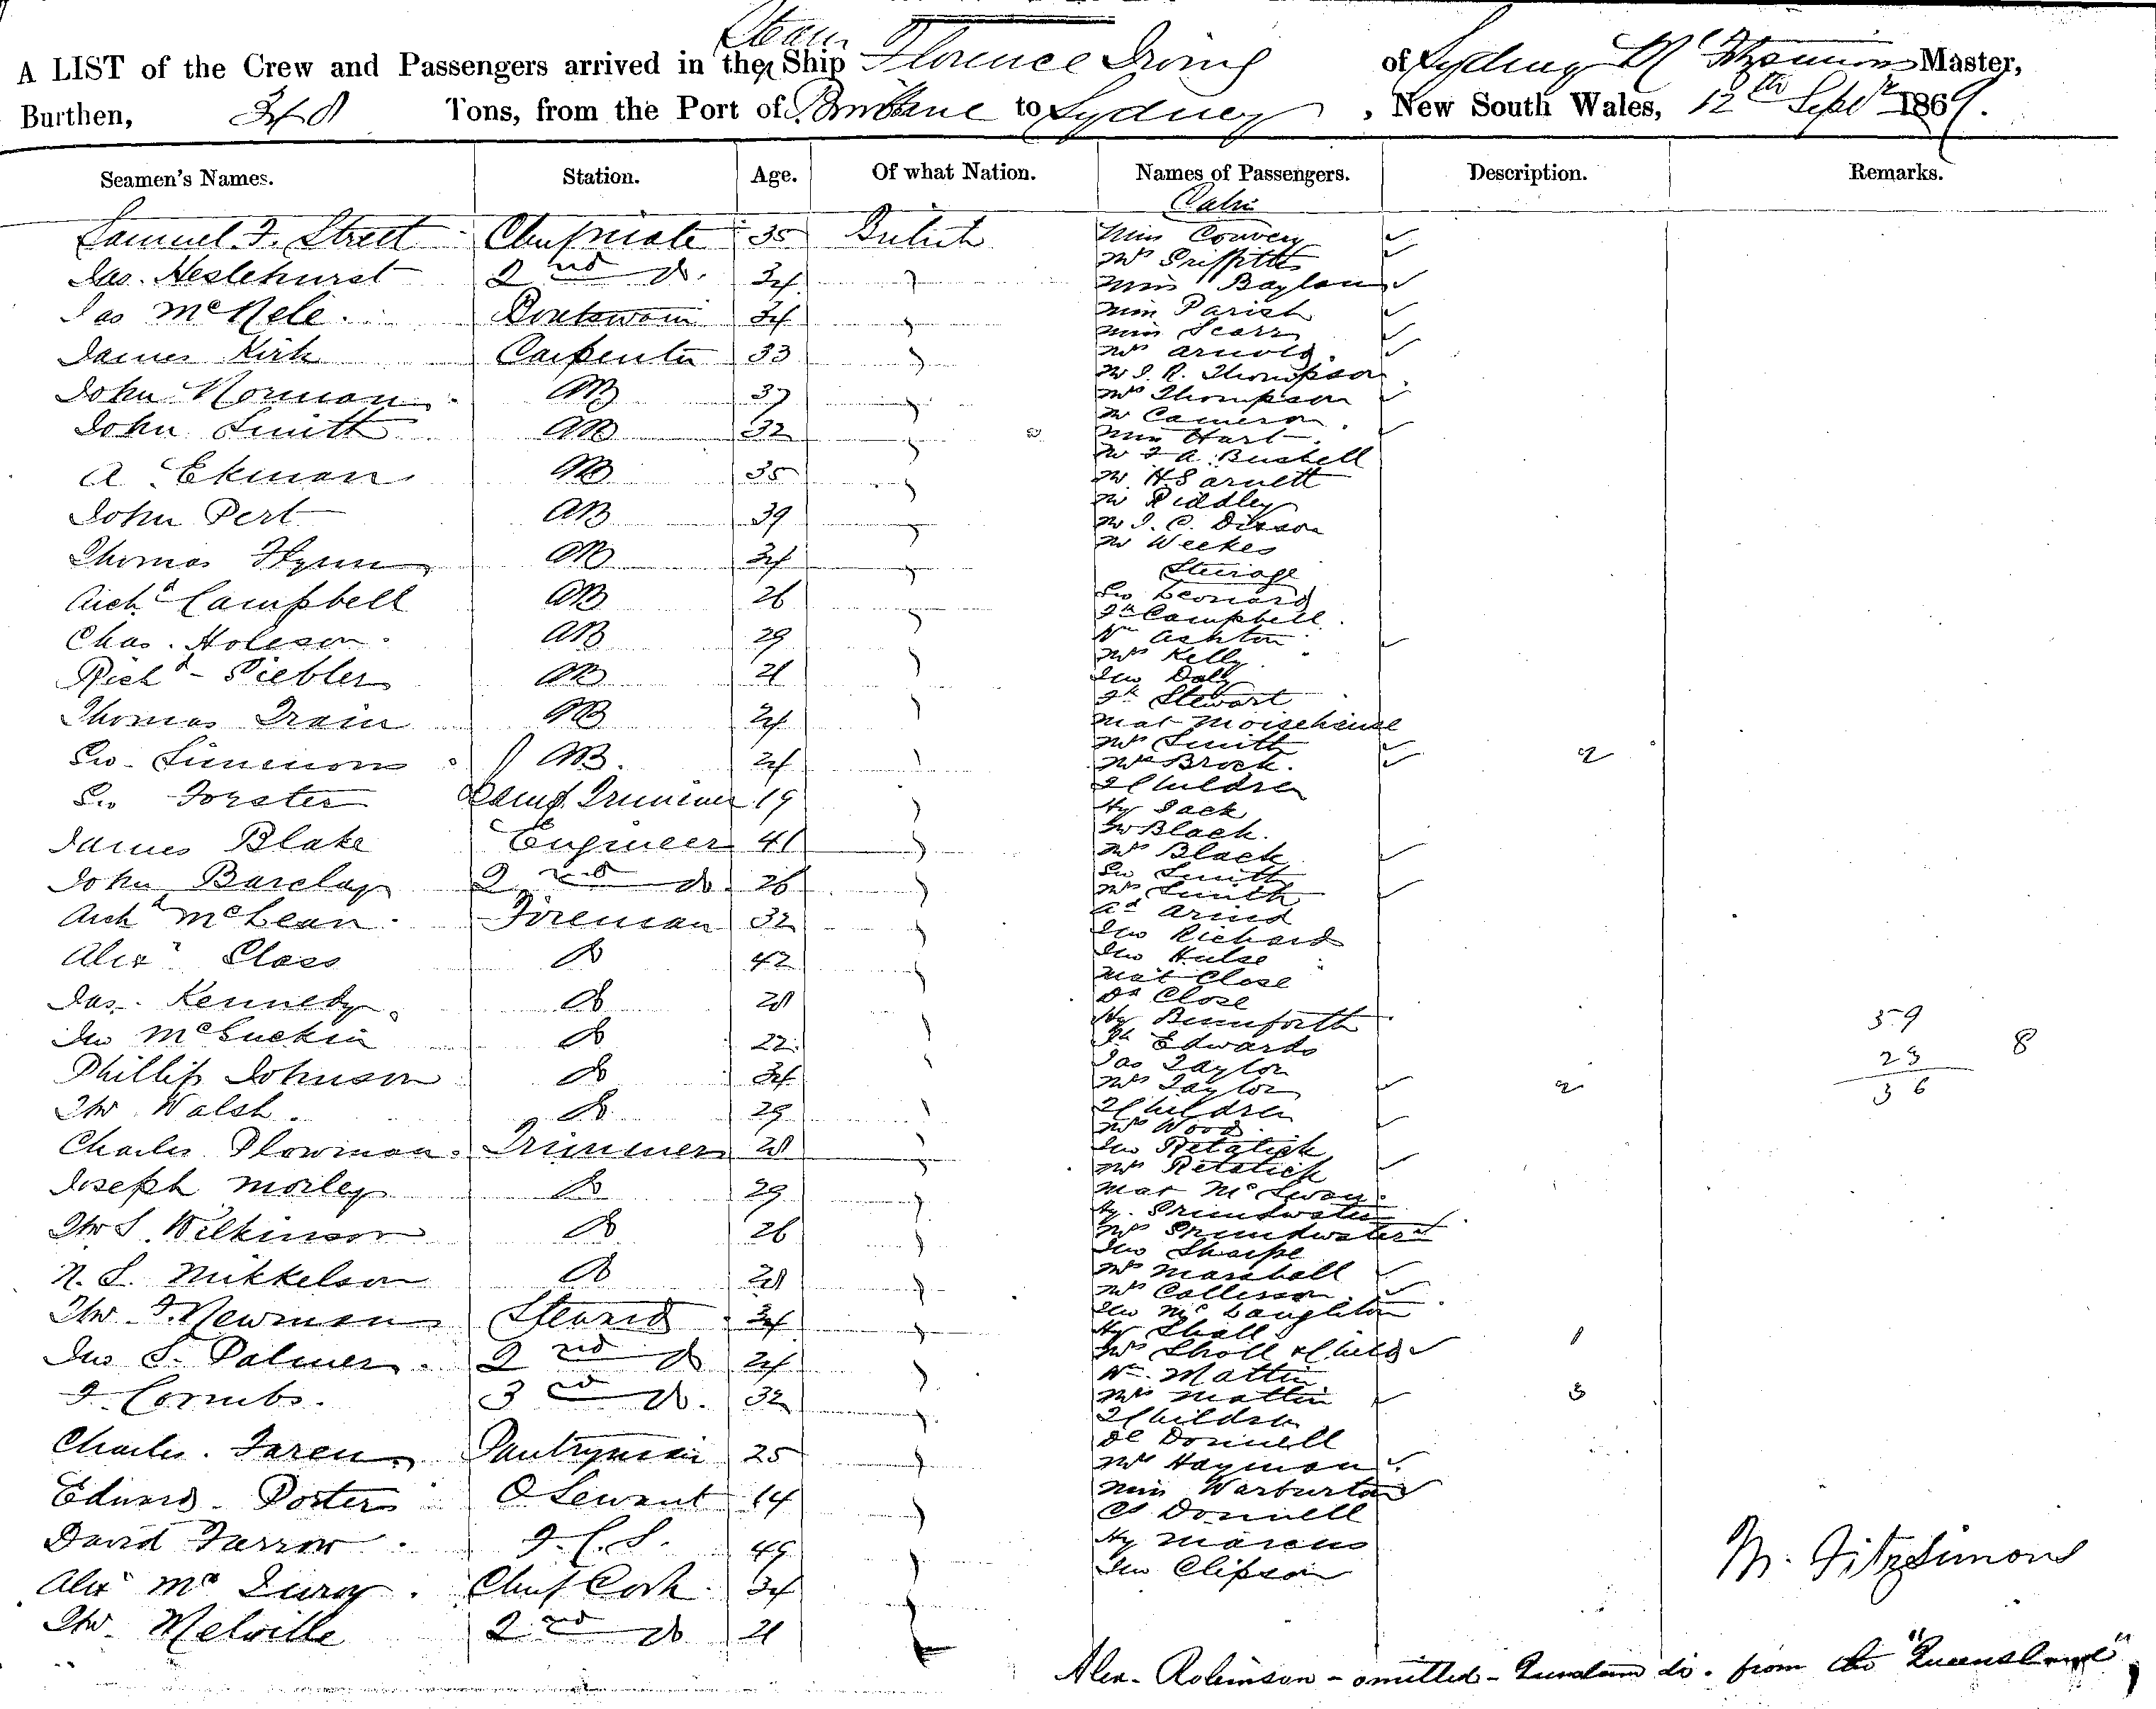 A LIST of the Crew and Passengers arrived in the Steam Ship Florence Irving of Sydney M Fitzsimons Master,
Burthen, 348 Tons, from the Port of Brisbane to Sydney, New South Wales, 12th Septr 1869.
Seamen's Names. Station. Age. Of what Nation. Names of Passengers. Description. Remarks.
Samuel F. Street Chief mate 35 British
Jas. Heslehurst 2nd do. 34 "
Jas McNele Boatswain 34 "
James Kirk Carpenter 33 "
John Norman AB 37 "
John Smith AB 32 "
A Ekman AB 35 "
John Pert AB 39 "
Thomas Flynn AB 34 "
Archd Campbell AB 26 "
Chas. Holeson AB 29 "
Richd Piebler AB 21 "
Thomas Train AB 24 "
Geo. Simmons AB. 24 "
Geo Forster Lamp Trimmer 19 "
James Blake Engineer 41 "
John Barclay 2nd do. 26 "
Archd McLean Foreman 32 "
Alexr Class do 42 "
Jas. Kennedy do 28 "
Jno McGuckin do 22 "
Phillip Johnson do 34 "
Thos Walsh do 29 "
Charles Plowman Trimmer 28 "
Joseph Morley do 29 "
Thos S. Wilkinson do 26 "
N. S. Mikkelson do 28 "
Thos F. Newman Steward 34 "
Jno S. Palmer 2nd do 24 "
F. Cornubs. 3rd do. 32 "
Charles. Faren Pantryman 25 "
Edward Porter O Servant 14 "
David Farrow F.C.S. 49 "
Alex Mc Chief Cook 34 "
Thos. Melville 2nd do 21 "
Cabin
Miss Convery
Mrs Griffiths
Miss Baylan
Miss Parish
Miss Scarr
Mrs Arnold
Mr J. R. Thompson
Mrs Thompson
Mr Cameron
Miss Hart
Mr F A. Bushell
Mr H S arnett
Mr Riddley
Mr J. C. Dixson
Mr Weekes
Steerage
Geo Leonard
Jh Campbell
Wm Ashton
Mrs Kelly
Jno Daly
Jh Stewart
Mat Moisehause
Mrs Smith
Mrs Brock. 2
2 Children
Hy Jack
Black.
Mrs Black
Geo Smith
Mrs Smith
Jno Richards
Jno Hulse
Mat Close
Close
Hy Bumforth
Edwards
Jas Taylor
Mrs Taylor 2
2 Children
Mrs Wood
Jno Retalick
Mrs Retalick
Mat McSwan
Hy. Grundwater
Mrs Grundwater
Jno Sharpe
Mrs Marshall
Mrs Collisson
Jno McLaughlton
Hy Sholl
Mrs Sholl & Child 1
Wm. Mattin
Mrs Mattin 3
3 Children
Donnell
Mrs Hayman
Miss Warburton
Donnell
Hy Marcus
Jno Clipson
59
23 8
36
M. Fitzsimons
Alex. Robinson - omitted - do. from the "Queensland"